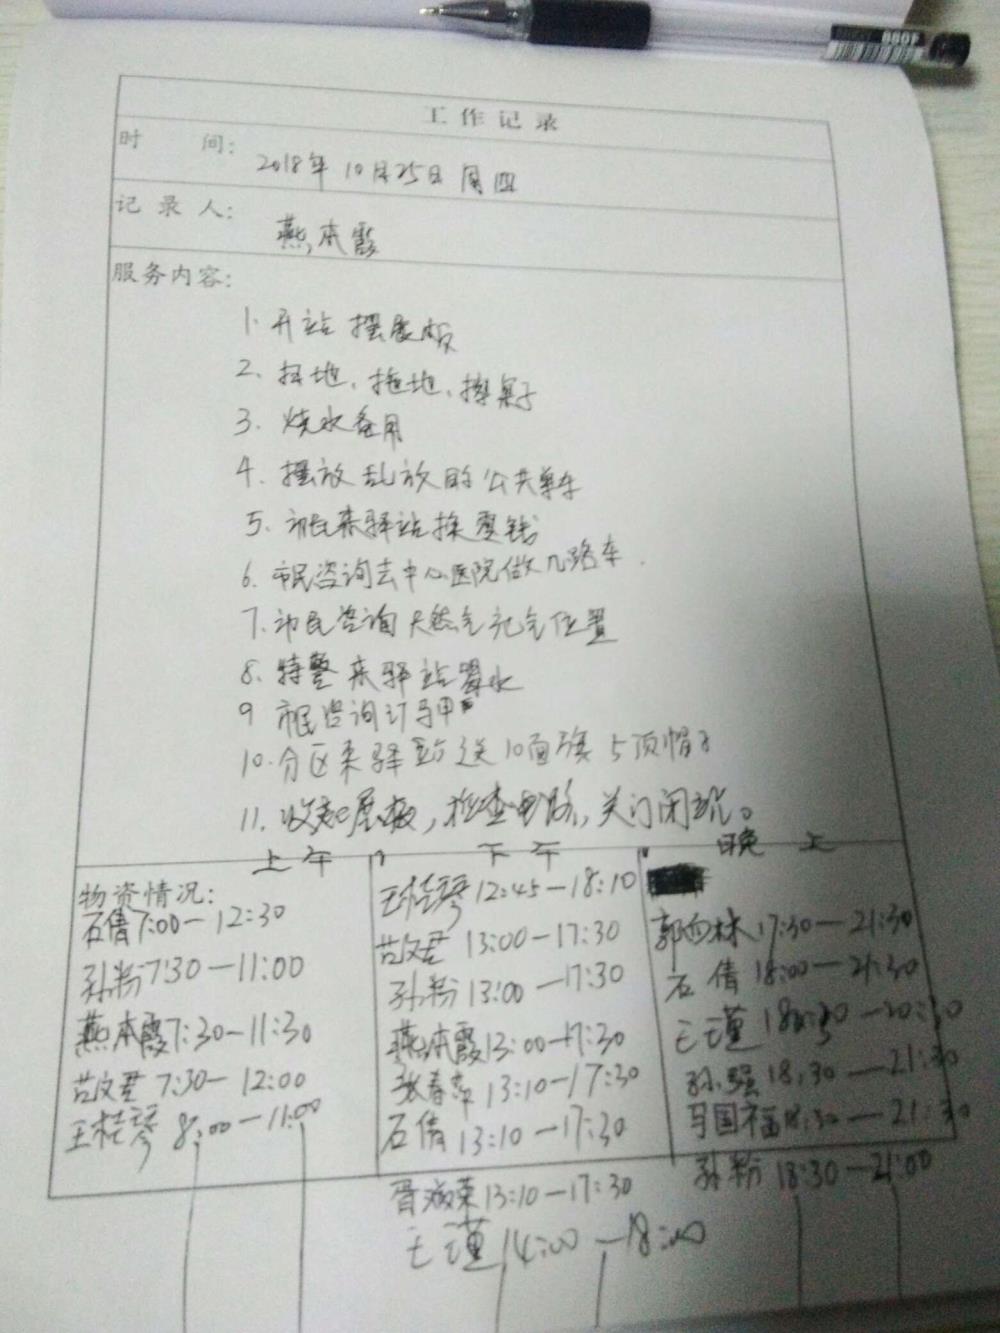 工作记录
时 间: 2018年10月25日 周四
记录人: 燕本霞
服务内容:
1. 开站 摆展板
2. 扫地、拖地、擦桌子
3. 烧水备用
4. 摆放乱放的公共单车
5. 市民来驿站换零钱
6. 市民咨询去中心医院做几路车.
7. 市民咨询天然气充气位置
8. 特警来驿站
9 市民咨询订马甲
10. 分区来驿站送10面旗 5顶帽子
11. 收起展板,检查电路,关门闭站。
上午 下午 晚上
物资情况:
石倩7:00—12:30
孙粉7:30—11:00
燕本霞7:30—11:30
苗文君 7:30—12:00
王桂琴 8:00—11:00
王桂琴 12:45—18:10
苗文君 13:00—17:30
孙粉 13:00—17:30
燕本霞13:00—17:30
张春萍 13:10—17:30
石倩 13:10—17:30
13:10—17:30
王瑾 14:00—18:00
郭西林 17:30—21:30
石倩 18:00—21:30
王瑾
孙强 18:30—21:30
马国福18:30—21:30
孙粉 18:30—21:00